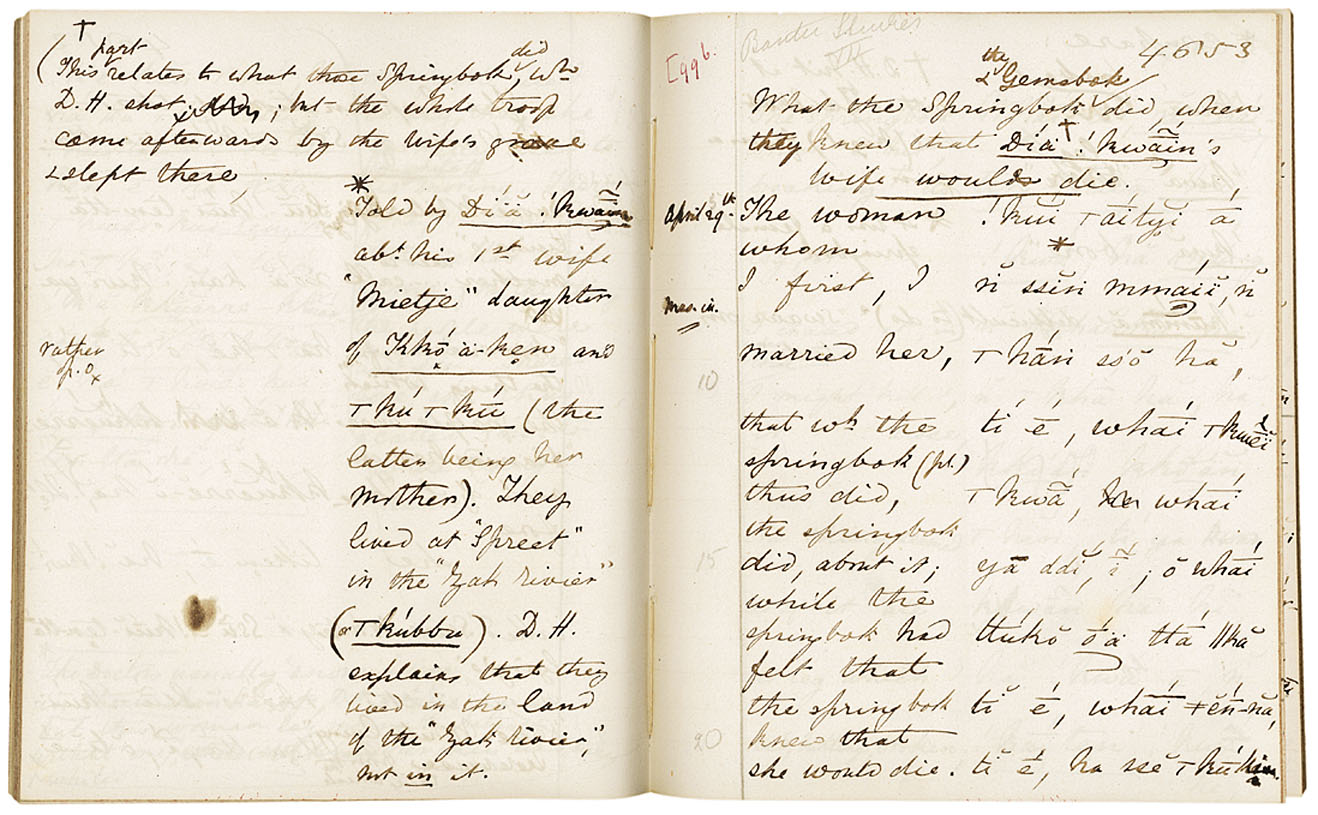 †
part
(This relates to what those Springbok, did wh
D. H. shot; but the whole troop
came afterwards by the wife's grave
& slept there
*
Told by Díä !kwãin
abt. his 1st wife
"Mietje" daughter
of Kkó̤ ä-kĕn and
rather
p. o
x
⊤kú⊤kú (the
latter being her
mother). They
lived at "Spreet"
in the "Zak rivier"
(or ⊤kúbbu). D. H.
explains that they
lived in the land
of the "Zak rivier",
not in it.
Bantu Studies
VI
[996.
4653
the
& Gemsbok
What the Springbok did, when
they knew that Díä† !kwãin's
wife would die.
April 29th
The woman !kúi ⊤áityi á
whom *
I first, I ñ ssĭn mmáiï, ñ
Mss. in.
married her, ⊤hăn sso hă,
10
that wh the tí é, whái ⊤kuẽï
springbok (pl.)
thus did, ⊤kwã, whái
the springbok
15
did, about it; yā ddí, ĩ; ŏ whái
while the
springbok had ttúkŏ óä ttā ǁkă
felt that
the springbok tĭ é, whái ǂĕn-nă,
20
knew that
she would die. tĭ é, ha ssĕ ⊤kú